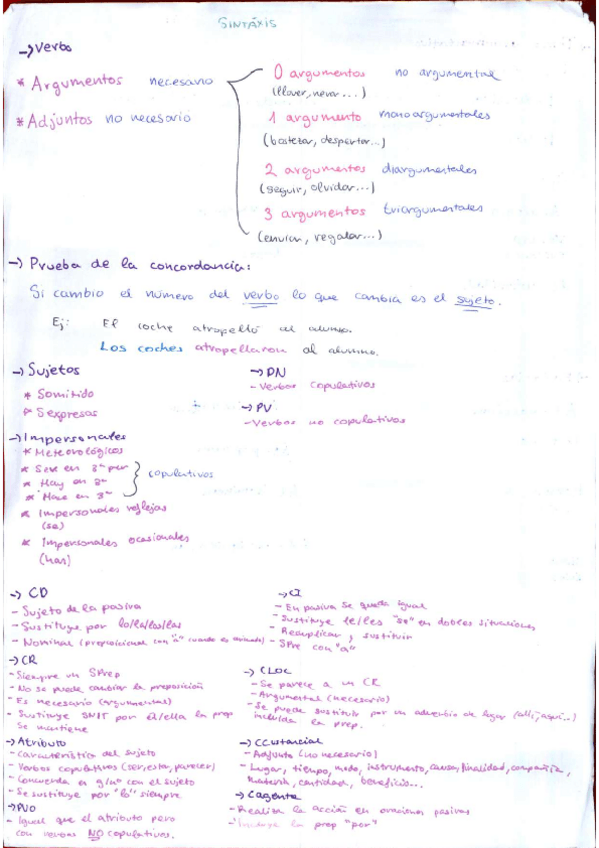 SINTÁXIS
→ Verbo
* Argumentos necesario
* Adjuntos no necesario
0 argumentos no argumental
(llover, nevar...)
1 argumento monoargumentales
(bostezar, despertar...)
2 argumentos diargumentales
(seguir, olvidar...)
3 argumentos triargumentales
(enviar, regalar...)
→ Prueba de la concordancia:
Si cambio el número del verbo lo que cambia es el sujeto.
Ej: El coche atropelló al alumno.
Los coches atropellaron al alumno.
→ Sujetos
* Somitido
* Sexpresas
→ PN
- Verbos copulativos
→ PV
- Verbos no copulativos
→ Impersonales
* Meteorológicos
* Sere en 3ª per
* Hay en 3ª
* Hace en 3ª
copulativos
* Impersonales reflejas
(se)
* Impersonales ocasionales
(han)
→ CD
- Sujeto de la pasiva
- Sustituye por lo/la/los/las
- Nominal (preposicional con "a" cuando es animado)
→ CI
- En pasiva se queda igual
- Sustituye le/les "se" en dobles situaciones
- Reduplicar y sustituir
- SPre con "a"
→ CR
- Siempre un SPrep
- No se puede cambiar la preposición
- Es necesario (argumental)
- Sustituye SNIT por él/ella la prep
se mantiene
→ CLOC
- Se parece a un CR
- Argumental (necesario)
- Se puede sustituir por un adverbio de lugar (allí, aquí...)
incluida la prep.
→ Atributo
- Característica del sujeto
- Verbos copulativos (ser, estar, parecer)
- Concuerda en g/nº con el sujeto
- Se sustituye por "lo" siempre
→ CCustancial
- Adjunto (no necesario)
- Lugar, tiempo, modo, instrumento, causa, finalidad, compañía,
materia, cantidad, beneficio...
→ PVO
- Igual que el atributo pero
con verbos NO copulativos.
→ Cagente
- Realiza la acción en oraciones pasivas
la prep "por"